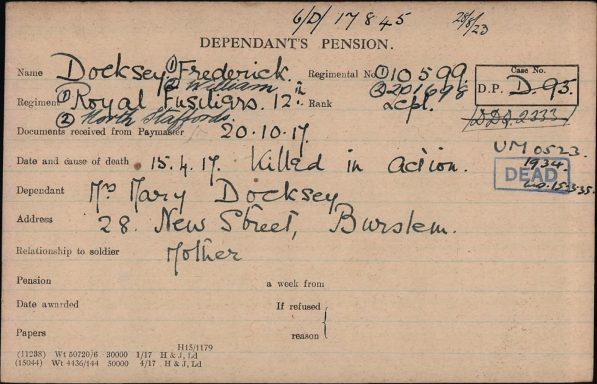 6/D/17845 28/8/23
DEPENDANT'S PENSION.
Name Docksey ① Frederick. Regimental No. ① 10599. Case No.
② William ② 201698 D.P. D. 93.
Regiment ① Royal Fusiliers. 12th Rank Lcpl. DDD.2333
② North Staffords.
Documents received from Paymaster 20.10.17.
UM0523
Date and cause of death 15.4.17. Killed in action. 1934.
DEAD
Dependant Mrs Mary Docksey 15.3.35.
Address 28. New Street, Burslem.
Relationship to soldier Mother
Pension a week from
Date awarded If refused
Papers reason
H15/1179
(11238) Wt 50720/6 30000 1/17 H & J, Ld
(15044) Wt 4436/144 50000 4/17 H & J, Ld